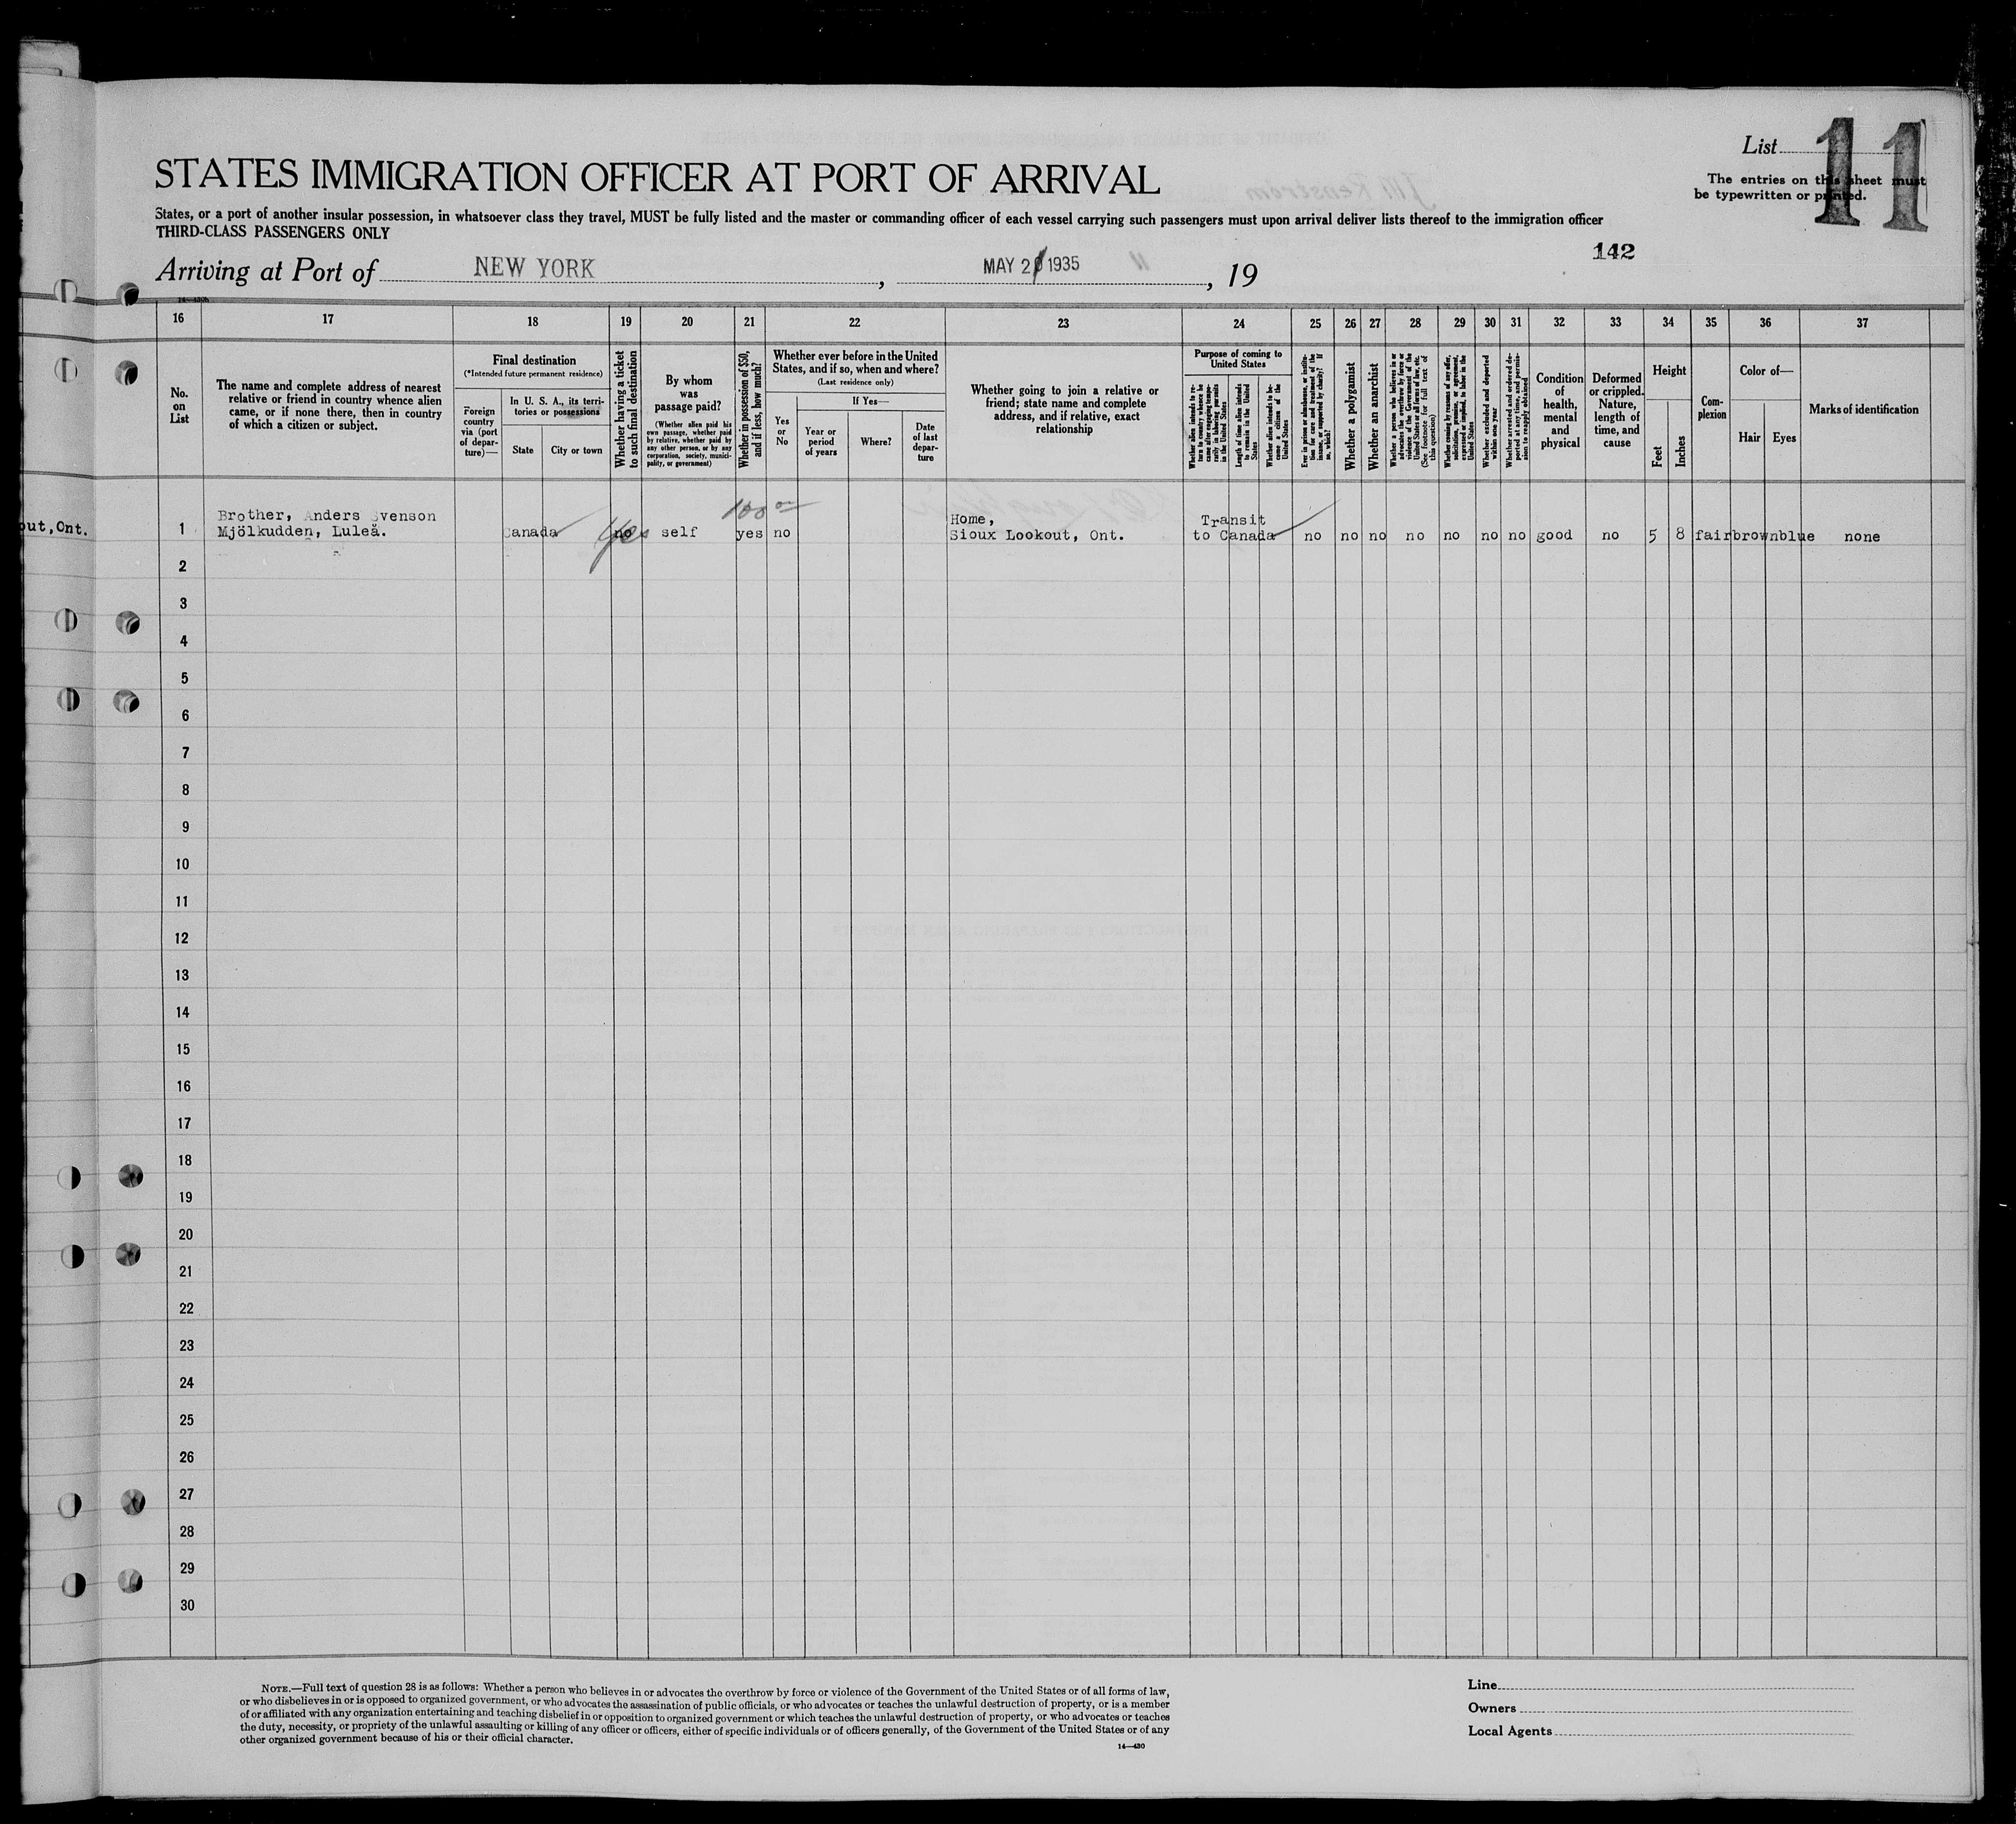 List
11
The entries on this sheet must
be typewritten or printed.
STATES IMMIGRATION OFFICER AT PORT OF ARRIVAL
States, or a port of another insular possession, in whatsoever class they travel, MUST be fully listed and the master or commanding officer of each vessel carrying such passengers must upon arrival deliver lists thereof to the immigration officer
THIRD-CLASS PASSENGERS ONLY
142
Arriving at Port of NEW YORK, MAY 21 1935, 19
16 17 18 19 20 21 22 23 24 25 26 27 28 29 30 31 32 33 34 35 36 37
No.
on
List
The name and complete address of nearest
relative or friend in country whence alien
came, or if none there, then in country
of which a citizen or subject.
Final destination
(*Intended future permanent residence)
Foreign
country
via (port
of depar-
ture)—
In U. S. A., its terri-
tories or possessions
State
City or town
Whether having a ticket
to such final destination
By whom
was
passage paid?
(Whether alien paid his
own passage, whether paid
by relative, whether paid by
any other person, or by any
corporation, society, munici-
pality, or government)
Whether in possession of $50,
and if less, how much?
Whether ever before in the United
States, and if so, when and where?
(Last residence only)
Yes
or
No
If Yes—
Year or
period
of years
Where?
Date
of last
depar-
ture
Whether going to join a relative or
friend; state name and complete
address, and if relative, exact
relationship
Purpose of coming to
United States
Whether alien intends to re-
turn to country whence he
came after engaging tempo-
rarily in laboring pursuits
in the United States
Length of time alien intends
to remain in the United
States
Whether alien intends to be-
come a citizen of the
United States
Ever in prison or almshouse, or institu-
tion for care and treatment of the
insane, or supported by charity? If
so, which?
Whether a polygamist
Whether an anarchist
Whether a person who believes in or
advocates the overthrow by force or
violence of the Government of the
United States or all forms of law, etc.
(See footnote for full text of
this question)
Whether coming by reasons of any offer,
solicitation, promise, or agreement,
expressed or implied, to labor in the
United States
Whether excluded and deported
within one year
Whether arrested and ordered de-
ported at any time, and permis-
sion to reapply obtained
Condition
of
health,
mental
and
physical
Deformed
or crippled.
Nature,
length of
time, and
cause
Height
Feet
Inches
Com-
plexion
Color of—
Hair
Eyes
Marks of identification
100 00
out,Ont.
1
Brother, Anders Svenson
Mjölkudden, Luleå.
Canada
no
Yes
self
yes
no
Home,
Sioux Lookout, Ont.
Transit
to Canada
no no no no no no no good no 5 8 fair brown blue none
2
3
4
5
6
7
8
9
10
11
12
13
14
15
16
17
18
19
20
21
22
23
24
25
26
27
28
29
30
NOTE.—Full text of question 28 is as follows: Whether a person who believes in or advocates the overthrow by force or violence of the Government of the United States or of all forms of law,
or who disbelieves in or is opposed to organized government, or who advocates the assassination of public officials, or who advocates or teaches the unlawful destruction of property, or is a member
of or affiliated with any organization entertaining and teaching disbelief in or opposition to organized government or which teaches the unlawful destruction of property, or who advocates or teaches
the duty, necessity, or propriety of the unlawful assaulting or killing of any officer or officers, either of specific individuals or of officers generally, of the Government of the United States or of any
other organized government because of his or their official character.
14—430
Line
Owners
Local Agents